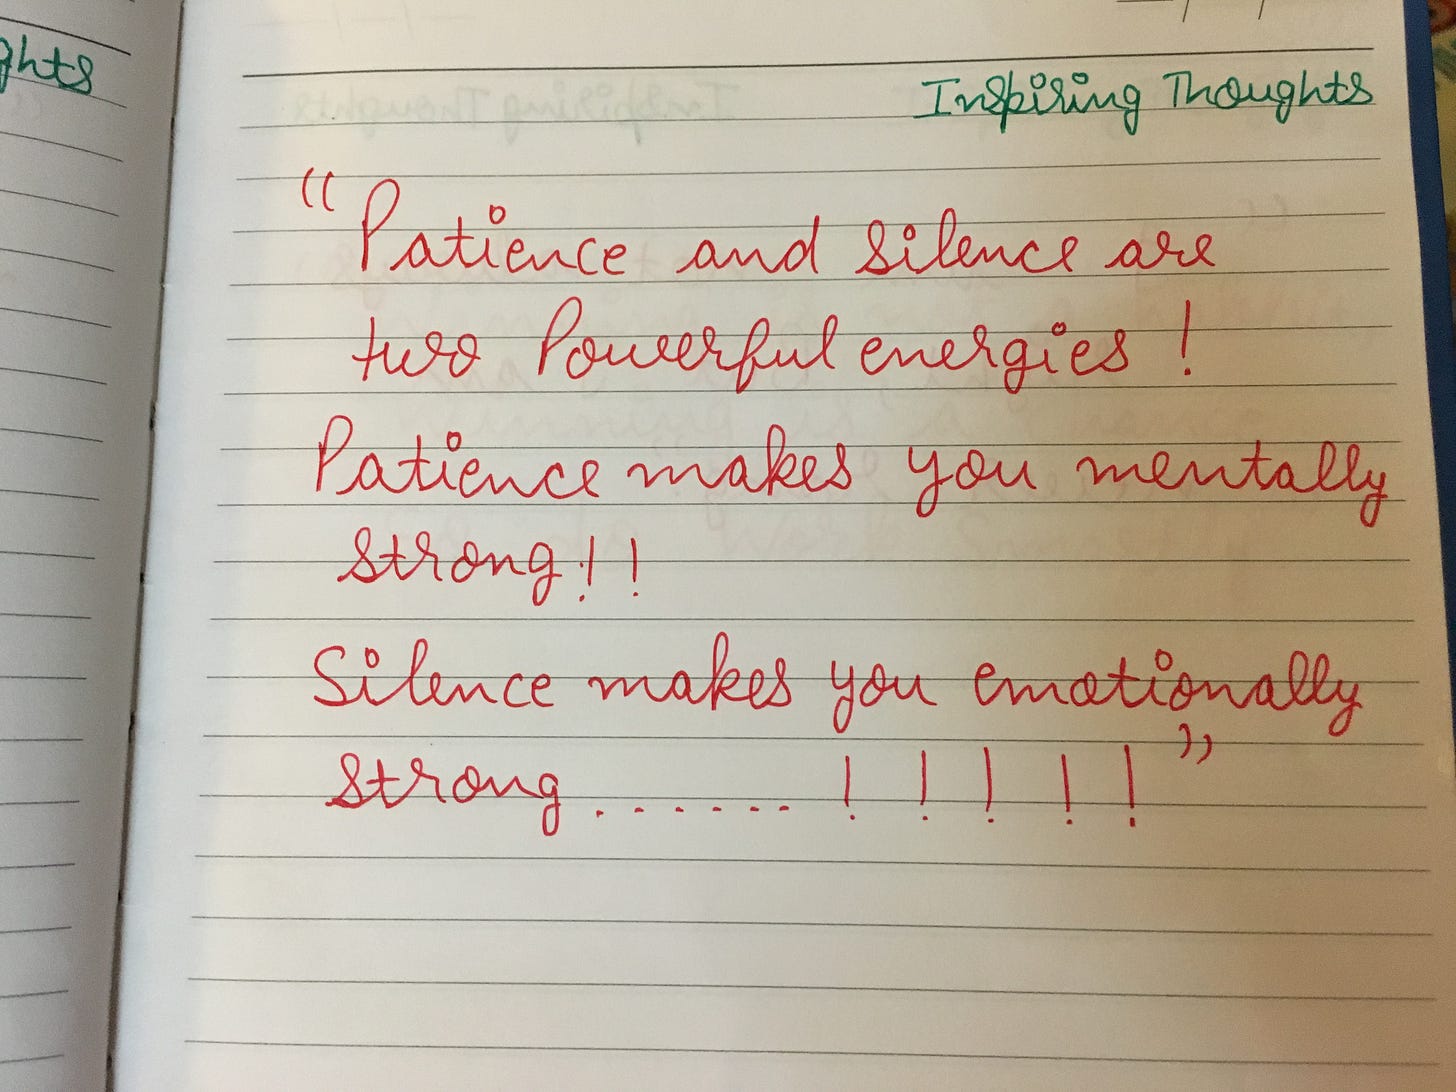 ghts
Inspiring Thoughts
“Patience and Silence are
two Powerful energies !
Patience makes you mentally
strong!!
Silence makes you emotionally
strong....... ! ! ! ! !”